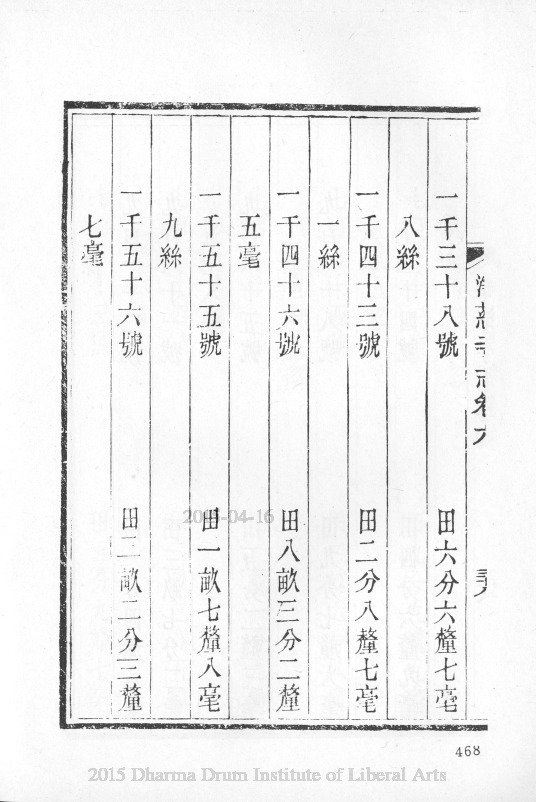 淨慈寺志卷六
一千三十八號 田六分六釐七毫
八絲
一千四十三號 田二分八釐七毫
一絲
一千四十六號 田八畝三分二釐
五毫
一千五十五號 田一畝七釐八毫
九絲
一千五十六號 田二畝二分三釐
七毫
2015-04-16
468
2015 Dharma Drum Institute of Liberal Arts